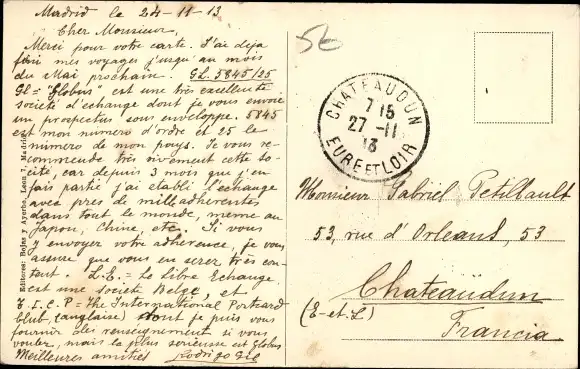 Madrid le 24-11-13
Cher Monsieur,
Merci pour votre carte. J'ai deja
fini mes voyages j'usqu'au mois
du Mai prochain. GL. 5845/25
Gl = "Globus" est une très excellente
societé d'échange dont je vous envoie
un prospectus sous enveloppe. 5845
est mon numero d'ordre et 25 le
numero de mon pays. Je vous re-
commende très vivement cette so-
cieté, car depuis 3 mois que j'en
fais partie j'ai etabli l'echange
avec près de mille adherentes
dans tout le monde, meme au
Japon, Chine, etc. Si vous
y envoyer votre adherence, je vous
assure que vous en serez très con-
tent. L.E. = Le Libre Echange
est une societé Belge, et
T.I.C.P = The International Postcard
Club (anglaise) dont je puis vous
fournir des renseignement si vous
voulez, mais la plus serieuse est Globus
Meilleures amities Rodrigo Gil
Editores: Rojas y Ayerbe, Leon 7, Madrid
CHATEAUDUN
7 15
27 -11
13
EURE ET LOIR
Monsieur Gabriel Petitbault
53, rue d'Orleans, 53
Chateaüdun
(E-et-L)
Francia